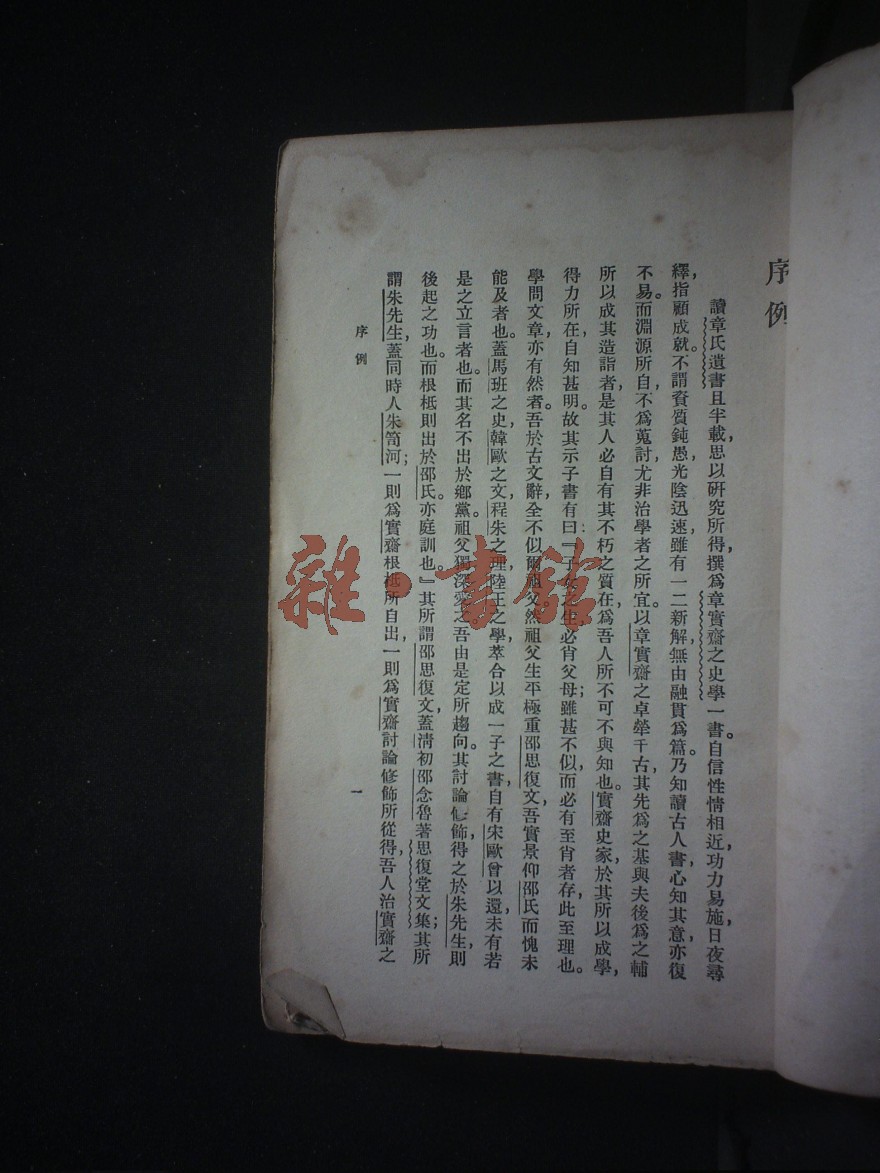 序例
讀章氏遺書且半載，思以研究所得，撰爲章實齋之史學一書。自信性情相近，功力易施，日夜尋
繹，指顧成就。不謂資質鈍愚，光陰迅速，雖有一二新解，無由融貫爲篇。乃知讀古人書，心知其意，亦復
不易。而淵源所自，不爲蒐討，尤非治學者之所宜。以章實齋之卓犖千古，其先爲之基與夫後爲之輔
所以成其造詣者，是其人必自有其不朽之質在，爲吾人所不可不與知也。實齋史家，於其所以成學，
得力所在，自知甚明。故其示子書有曰：子女之生，必肖父母；雖甚不似，而必有至肖者存，此至理也。
學問文章，亦有然者。吾於古文辭，全不似爾祖父，然祖父生平極重邵思復文，吾實景仰邵氏而愧未
能及者也。蓋馬班之史，韓歐之文，程朱之理，陸王之學，萃合以成一子之書，自有宋歐曾以還，未有若
是之立言者也。而其名不出於鄉黨，祖父獨深愛之。吾由是定所趨向。其討論修飾，得之於朱先生，則
後起之功也。而根柢則出於邵氏，亦庭訓也。』其所謂邵思復文，蓋淸初邵念魯著思復堂文集；其所
謂朱先生，蓋同時人朱笥河；一則爲實齋根柢所自出，一則爲實齋討論修飾所從得，吾人治實齋之
序例
一
雜·書館